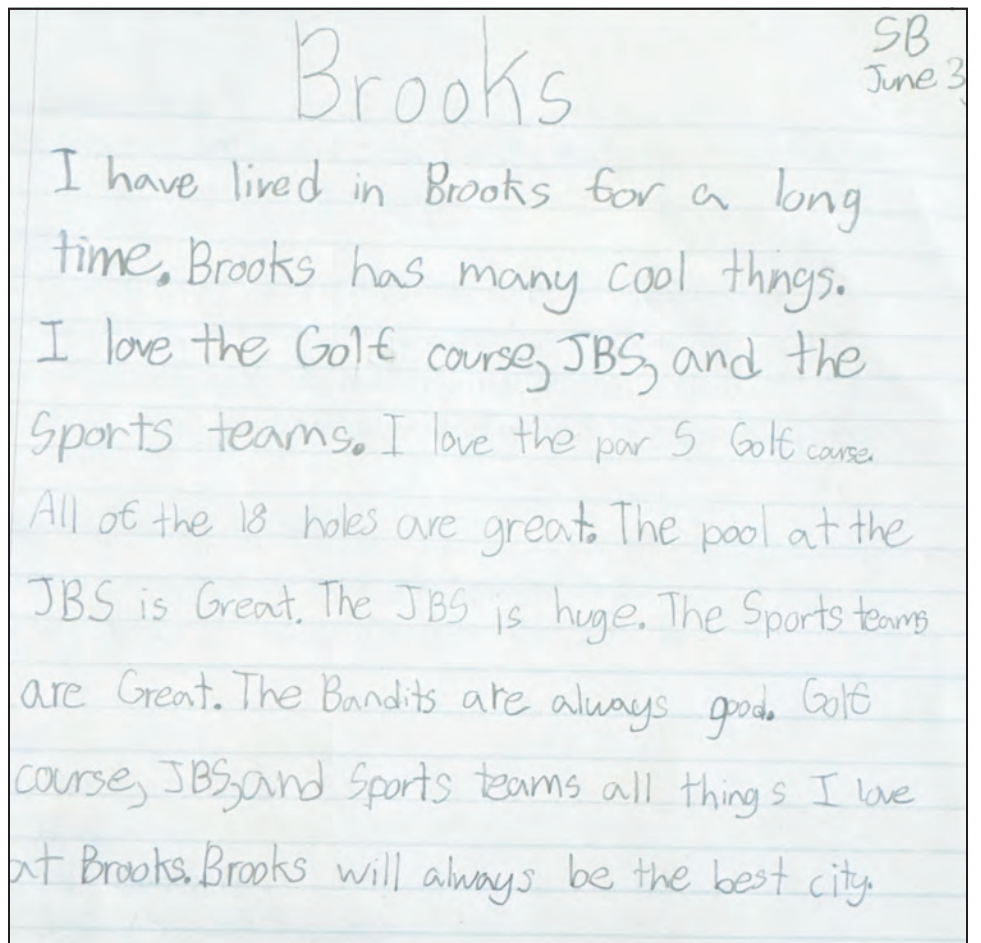 SB
June 3
Brooks
I have lived in Brooks for a long
time. Brooks has many cool things.
I love the Golf course, JBS, and the
Sports teams. I love the par 5 Golf course.
All of the 18 holes are great. The pool at the
JBS is Great. The JBS is huge. The Sports teams
are Great. The Bandits are always good. Golf
course, JBS, and Sports teams all things I love
at Brooks. Brooks will always be the best city.